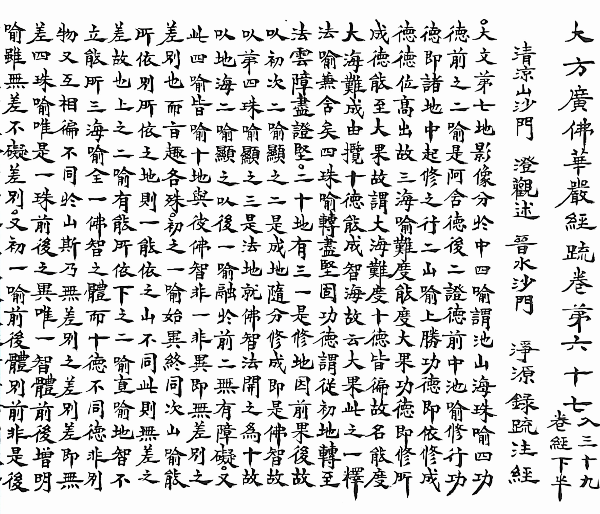 大方廣佛華嚴經疏卷第六十七入三十九卷經下半
清涼山沙門 澄觀述 晉水沙門 淨源錄疏注經
大文第七地影像分於中四喻謂池山海珠喻四功
德前之二喻是阿含德後二證德前中池喻修行功
德即諸地中起修之行二山喻上勝功德即依修成
德德位高出故三海喻難度能度大果功德即修所
成德能至大果故謂大海難度十德皆徧故名能度
大海難成由攬十德能成智海故云大果此之一釋
法喻兼含矣四珠喻轉盡堅固功德謂從初地轉至
法雲障盡證堅二十地有三一是修地因前果後故
以初次二喻顯之二是成地隨分修成即是佛智故
以第四珠喻顯之三是法地就佛智法開之為十故
以地海二喻顯之以後一喻融於前二無有障礙又
此四喻皆喻十地與彼佛智非一非異即無差別之
差別也而言趣各殊初之一喻始異終同次山喻能
所依別所依王地則一能依之山不同此則一能所
差故也上之二喻有能所依下之二喻直喻地智不
立能所三海喻全一佛智之體而十德不同德非別
物又互相徧不同於山斯乃無差別之差別差即無
差四珠喻唯是一珠前後之異唯一智體前後增明
喻雖無差不礙差別又初一喻前後體別前非是後